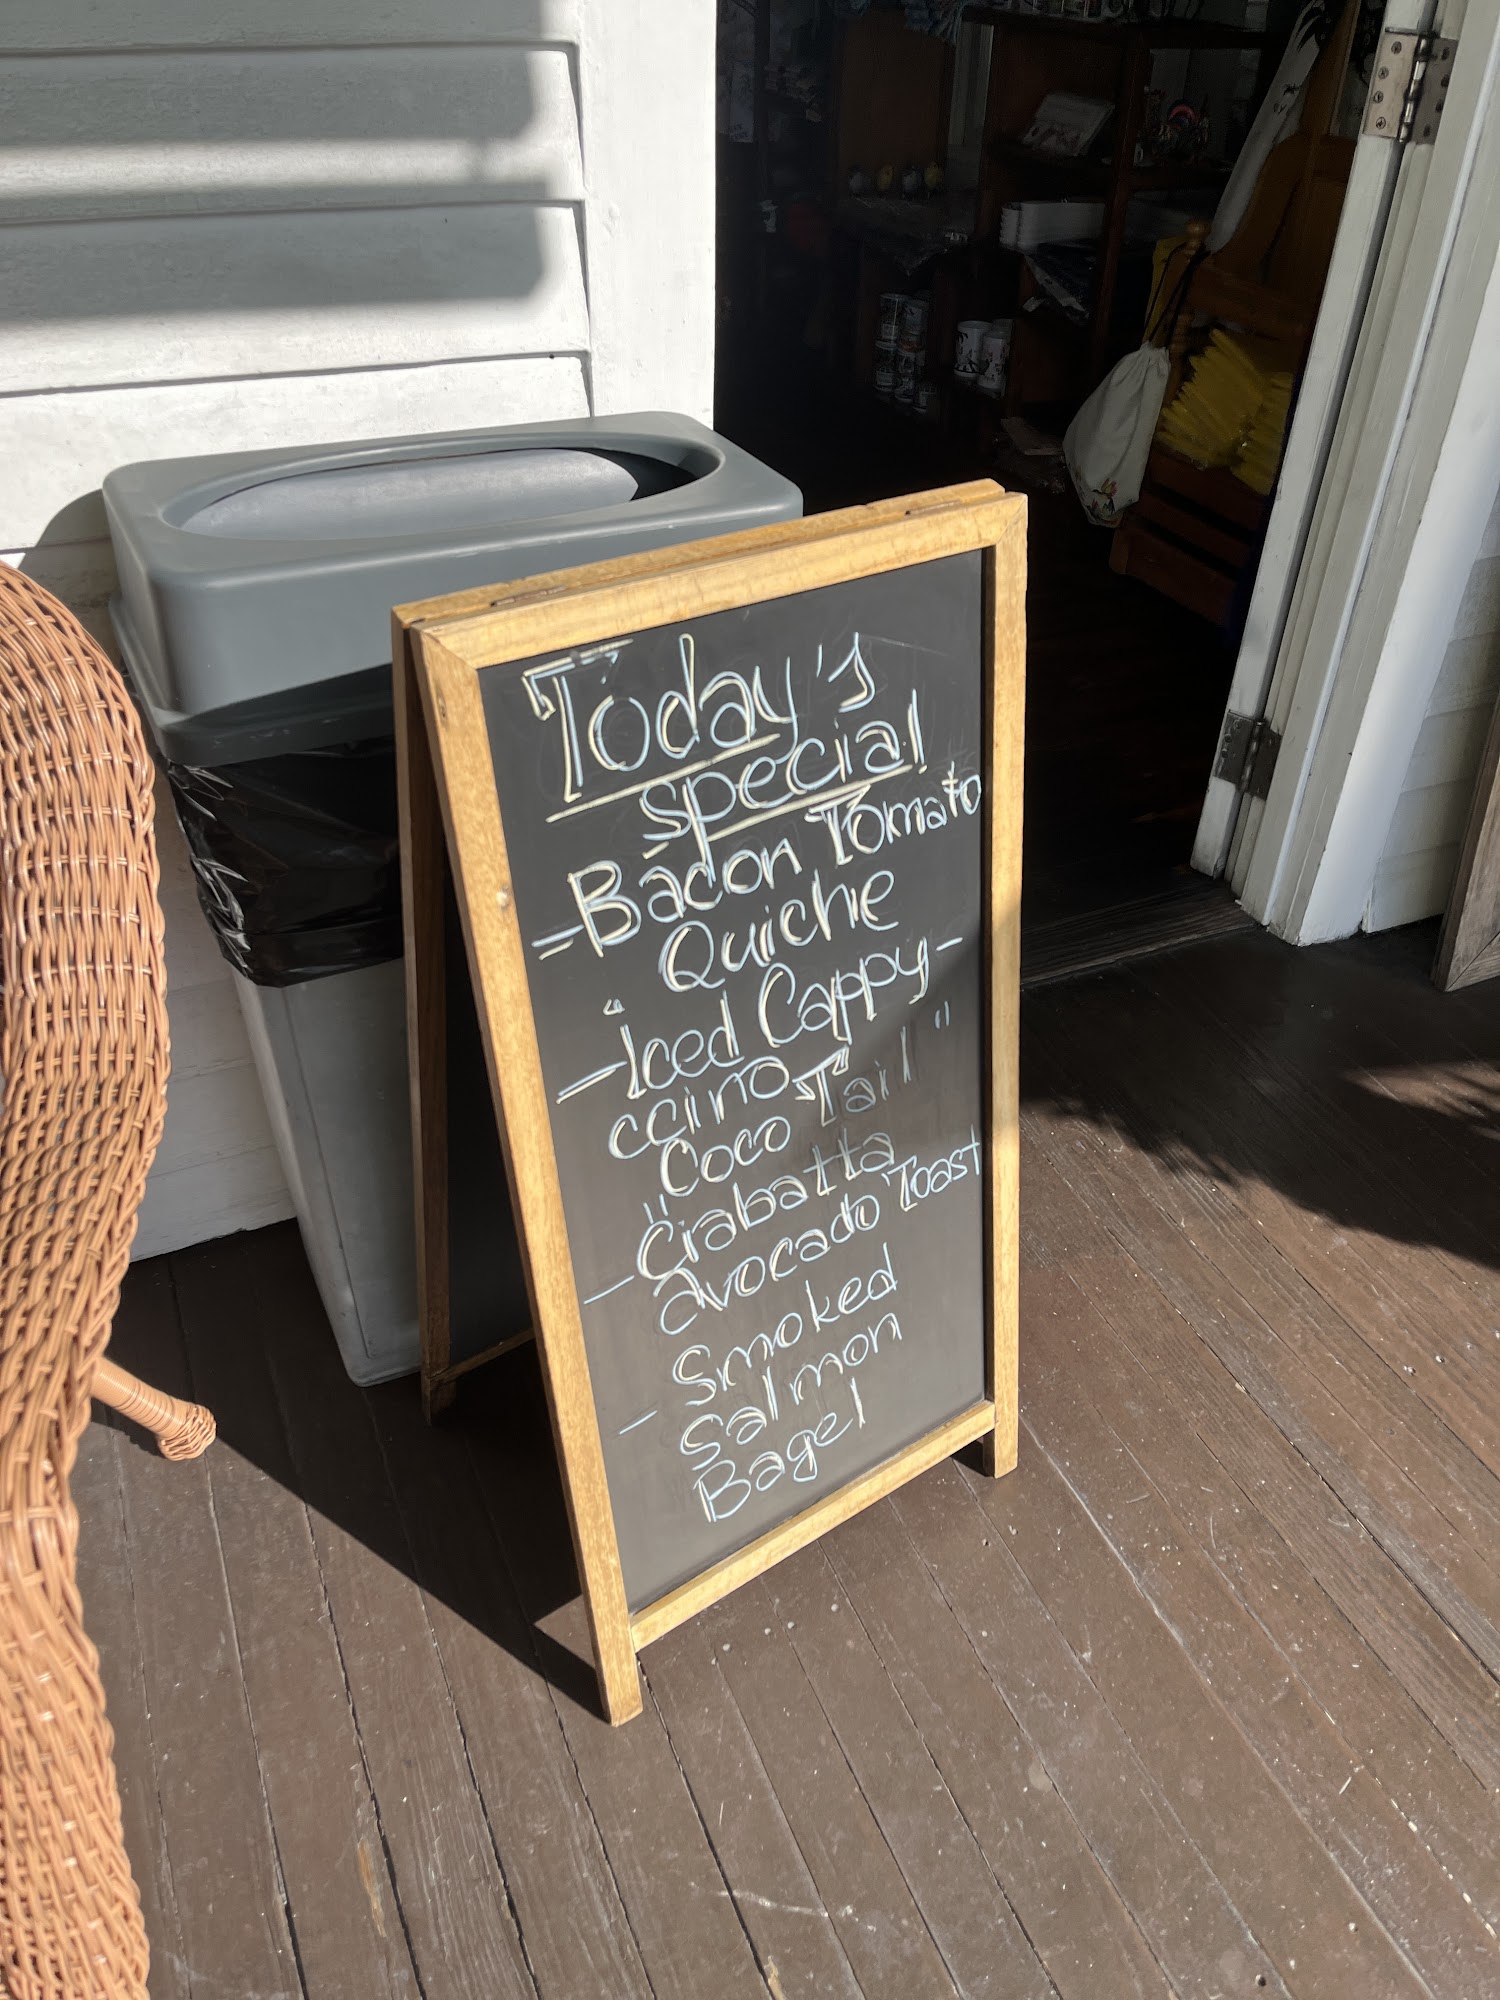 Today's
special
- Bacon Tomato
Quiche
"
- Iced Cappy-
ccino
Coco Tail "
" Ciabatta
- avocado Toast
Smoked
- Salmon
Bagel